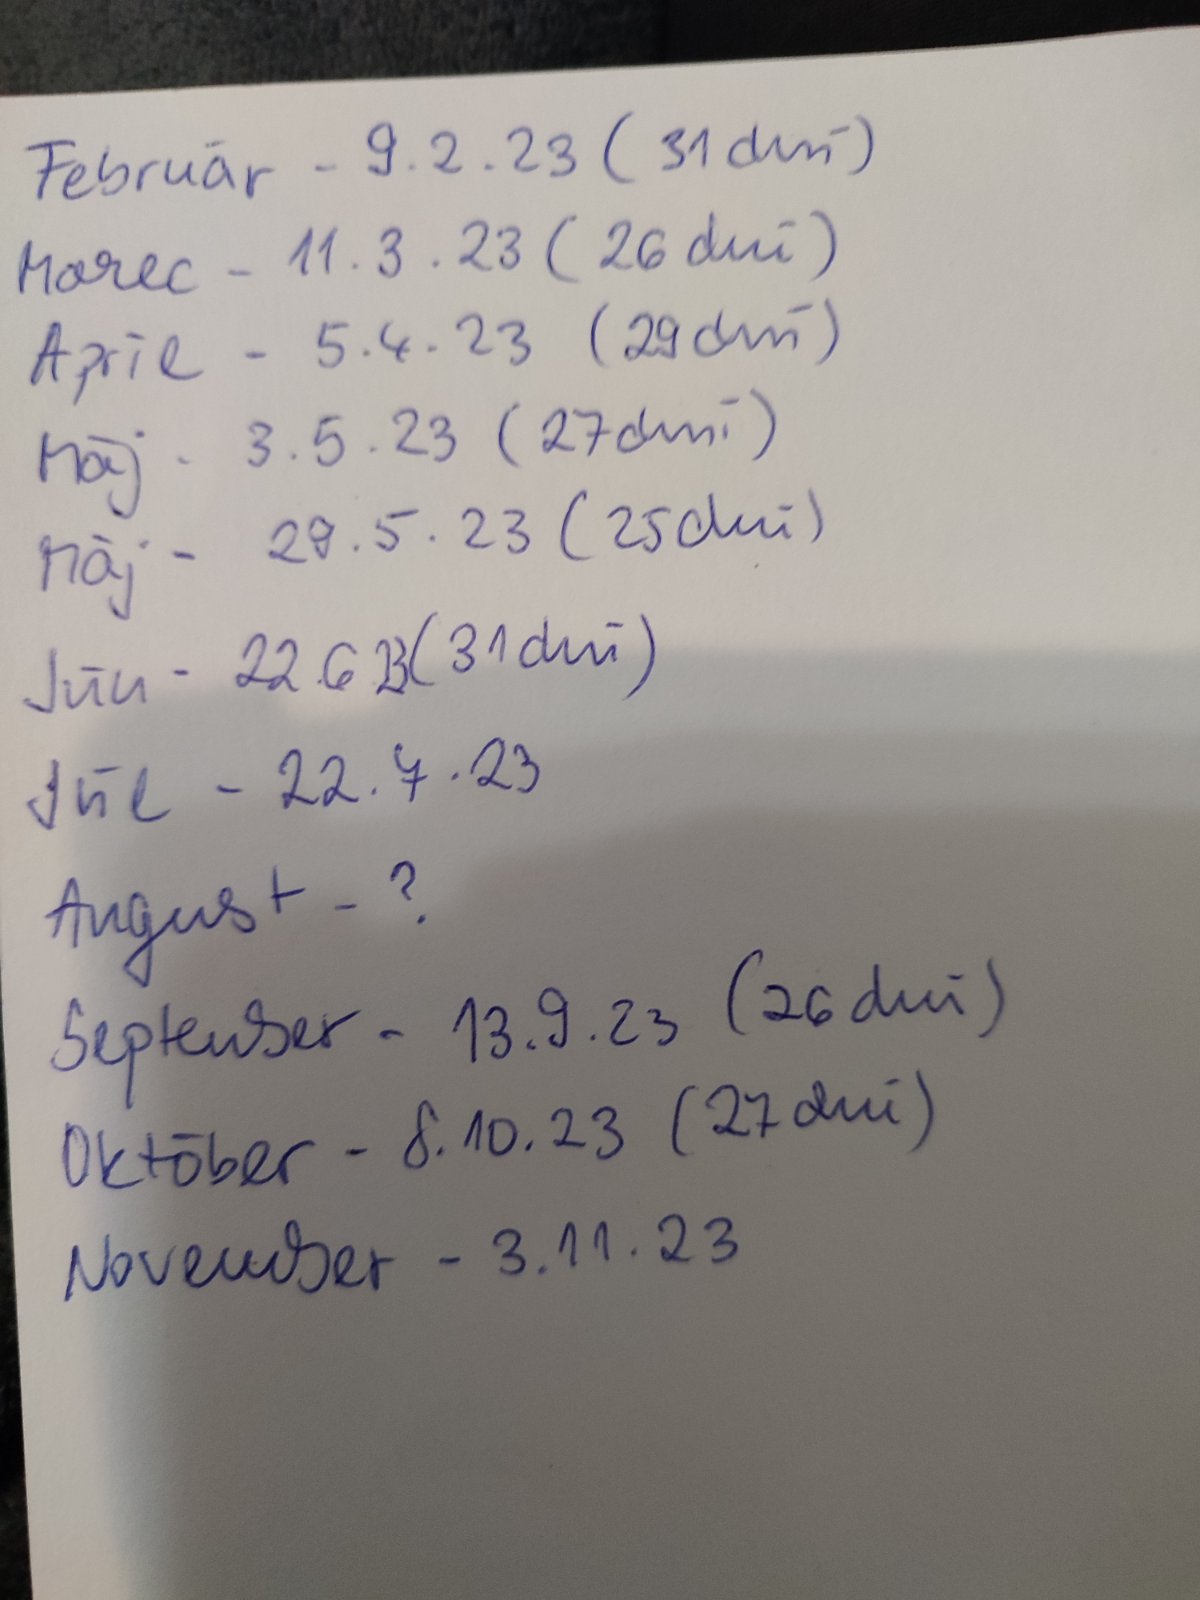 Február - 9.2.23 (31 dní)
Marec - 11.3.23 (26 dní)
Apríl - 5.4.23 (29 dní)
Máj - 3.5.23 (27 dní)
Máj - 29.5.23 (25 dní)
Jún - 22.6 23 (31 dní)
Júl - 22.7.23
August - ?
September - 13.9.23 (26 dní)
Október - 8.10.23 (27 dní)
November - 3.11.23